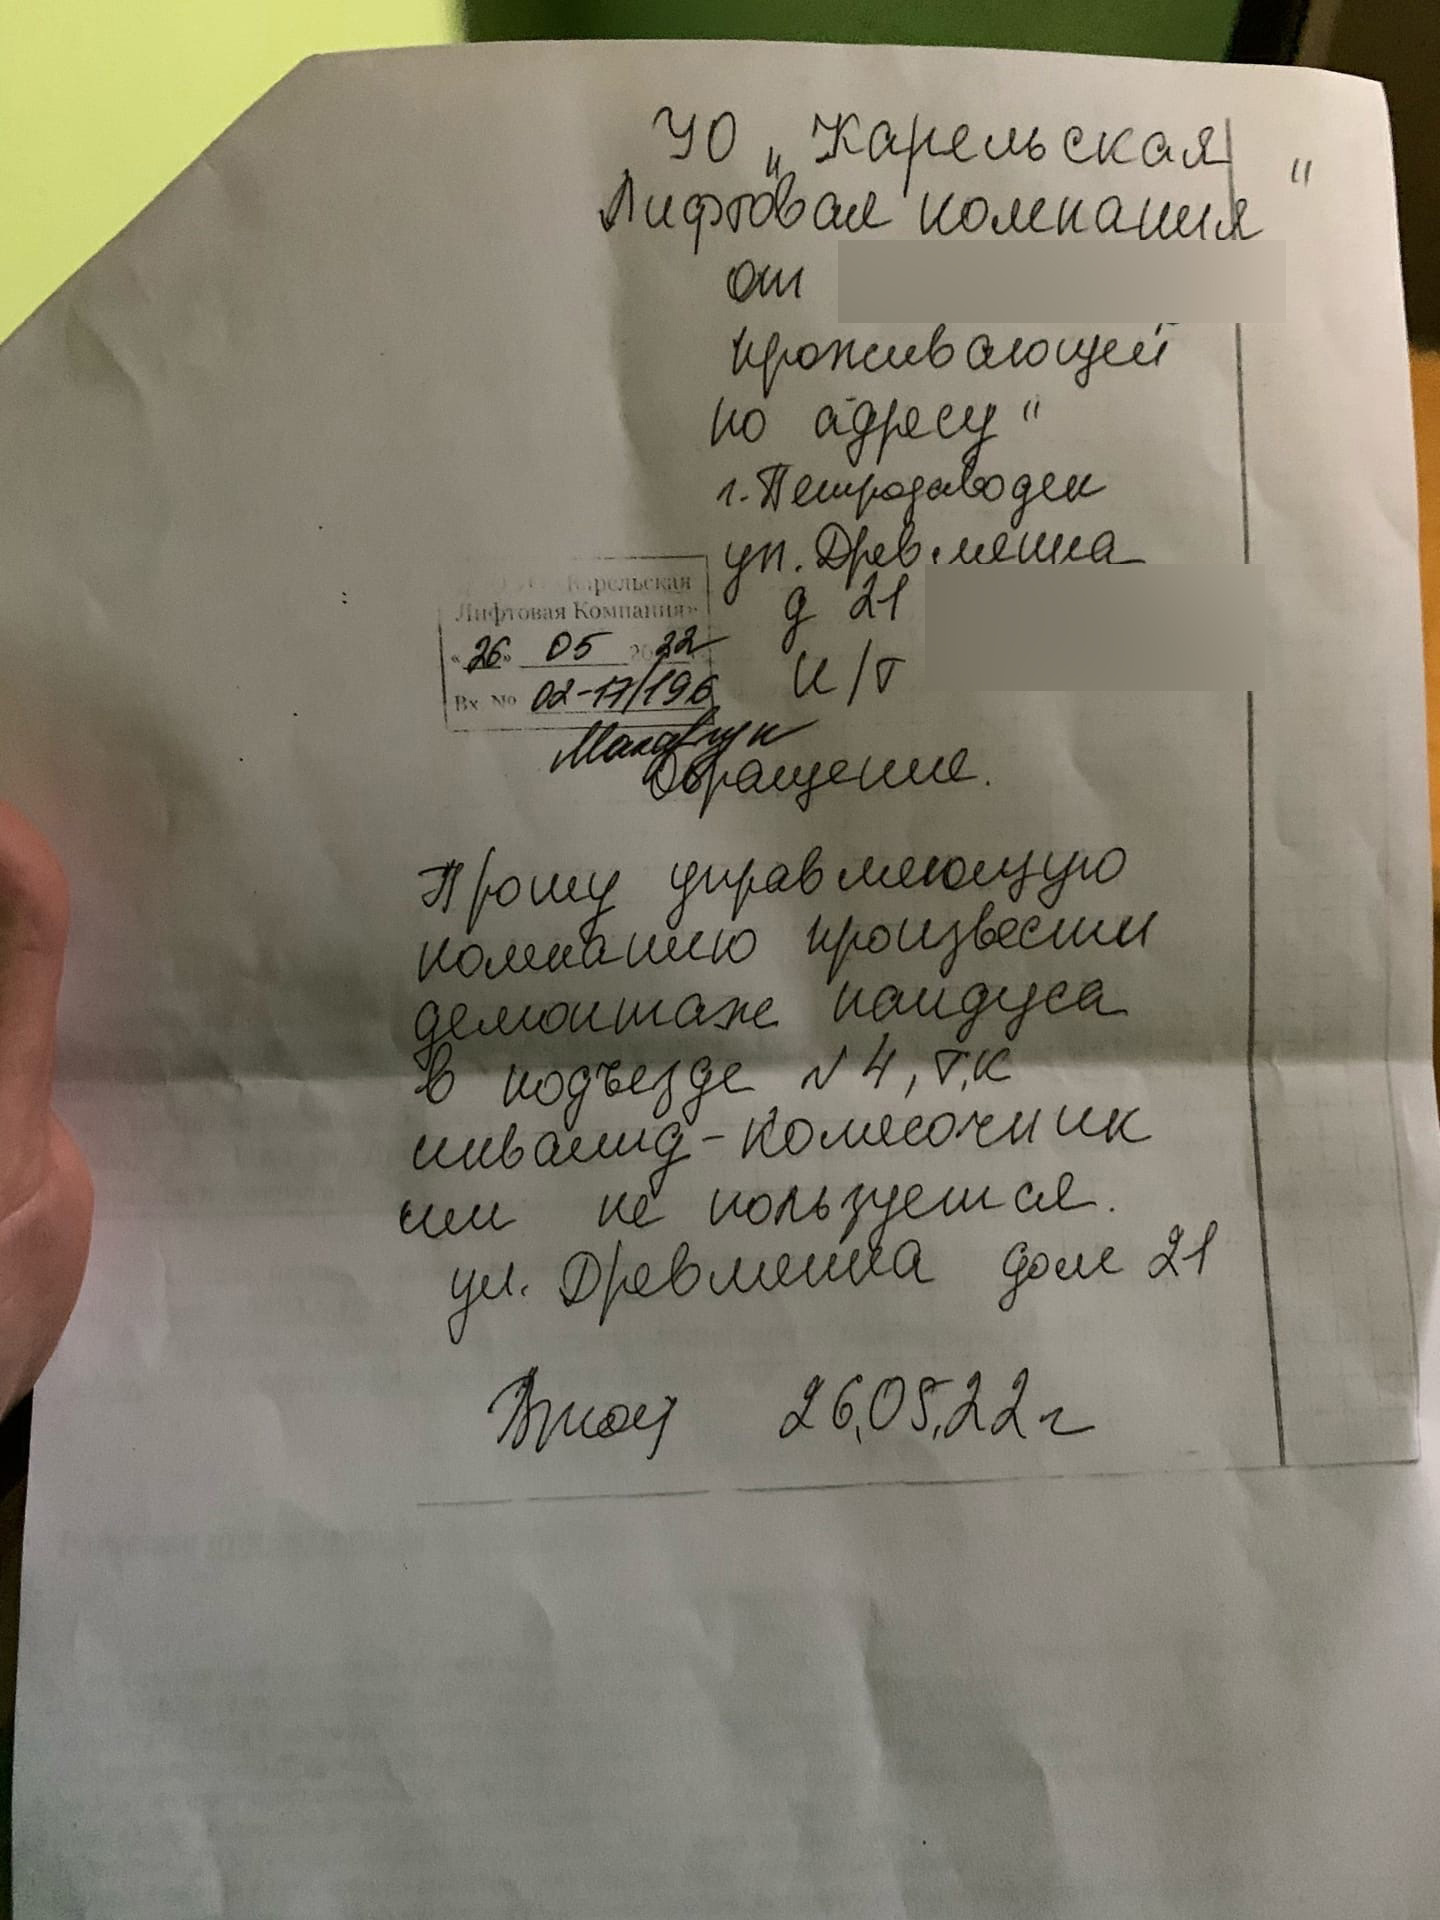 УО „Карельская
Лифтовая компания"
от
проживающей
по адресу"
г. Петрозаводск
ул. Древлянка
д 21
И/Т
Карельская
Лифтовая Компания»
«26» 05 2022
Вх. № 02-17/196
Обращение.
Прошу управляющую
компанию произвести
демонтаж пандуса
в подъезде N 4, т,к
инвалид-колясочник
им не пользуется.
ул. Древлянка дом 21
26,05,22 г